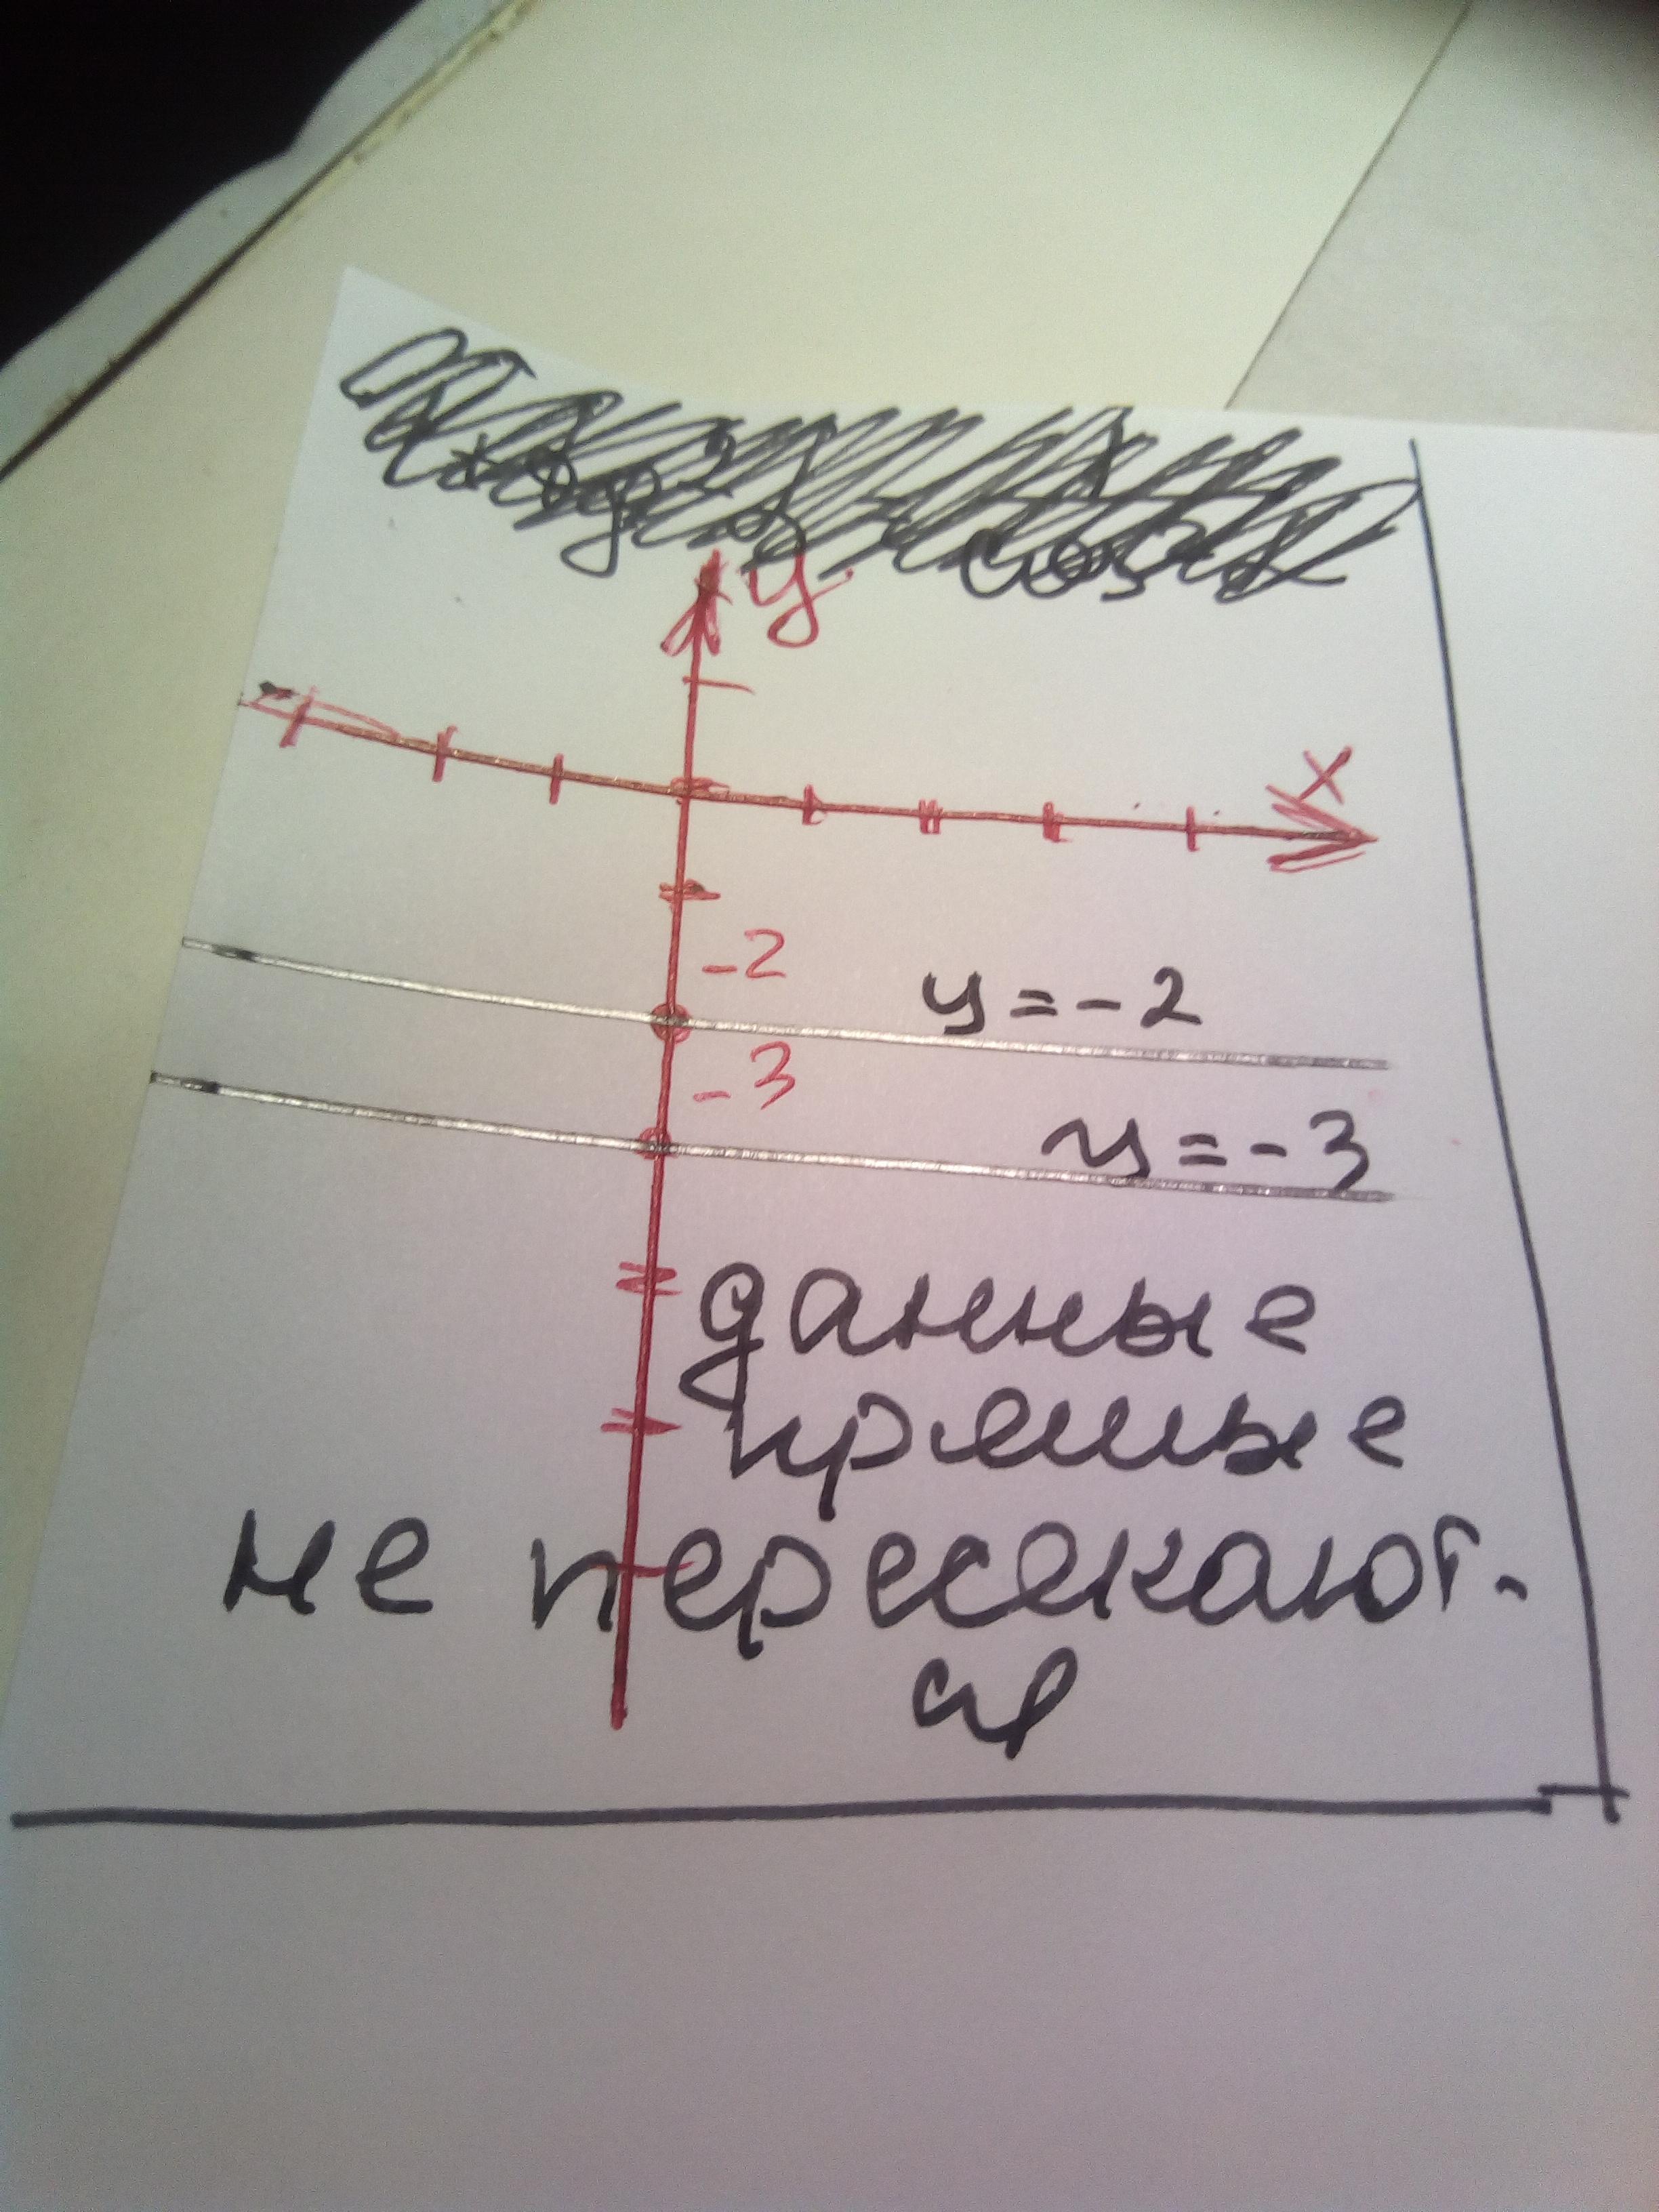 y
x
-2
y = -2
-3
y = -3
данные
прямые
не пересекают-
ся